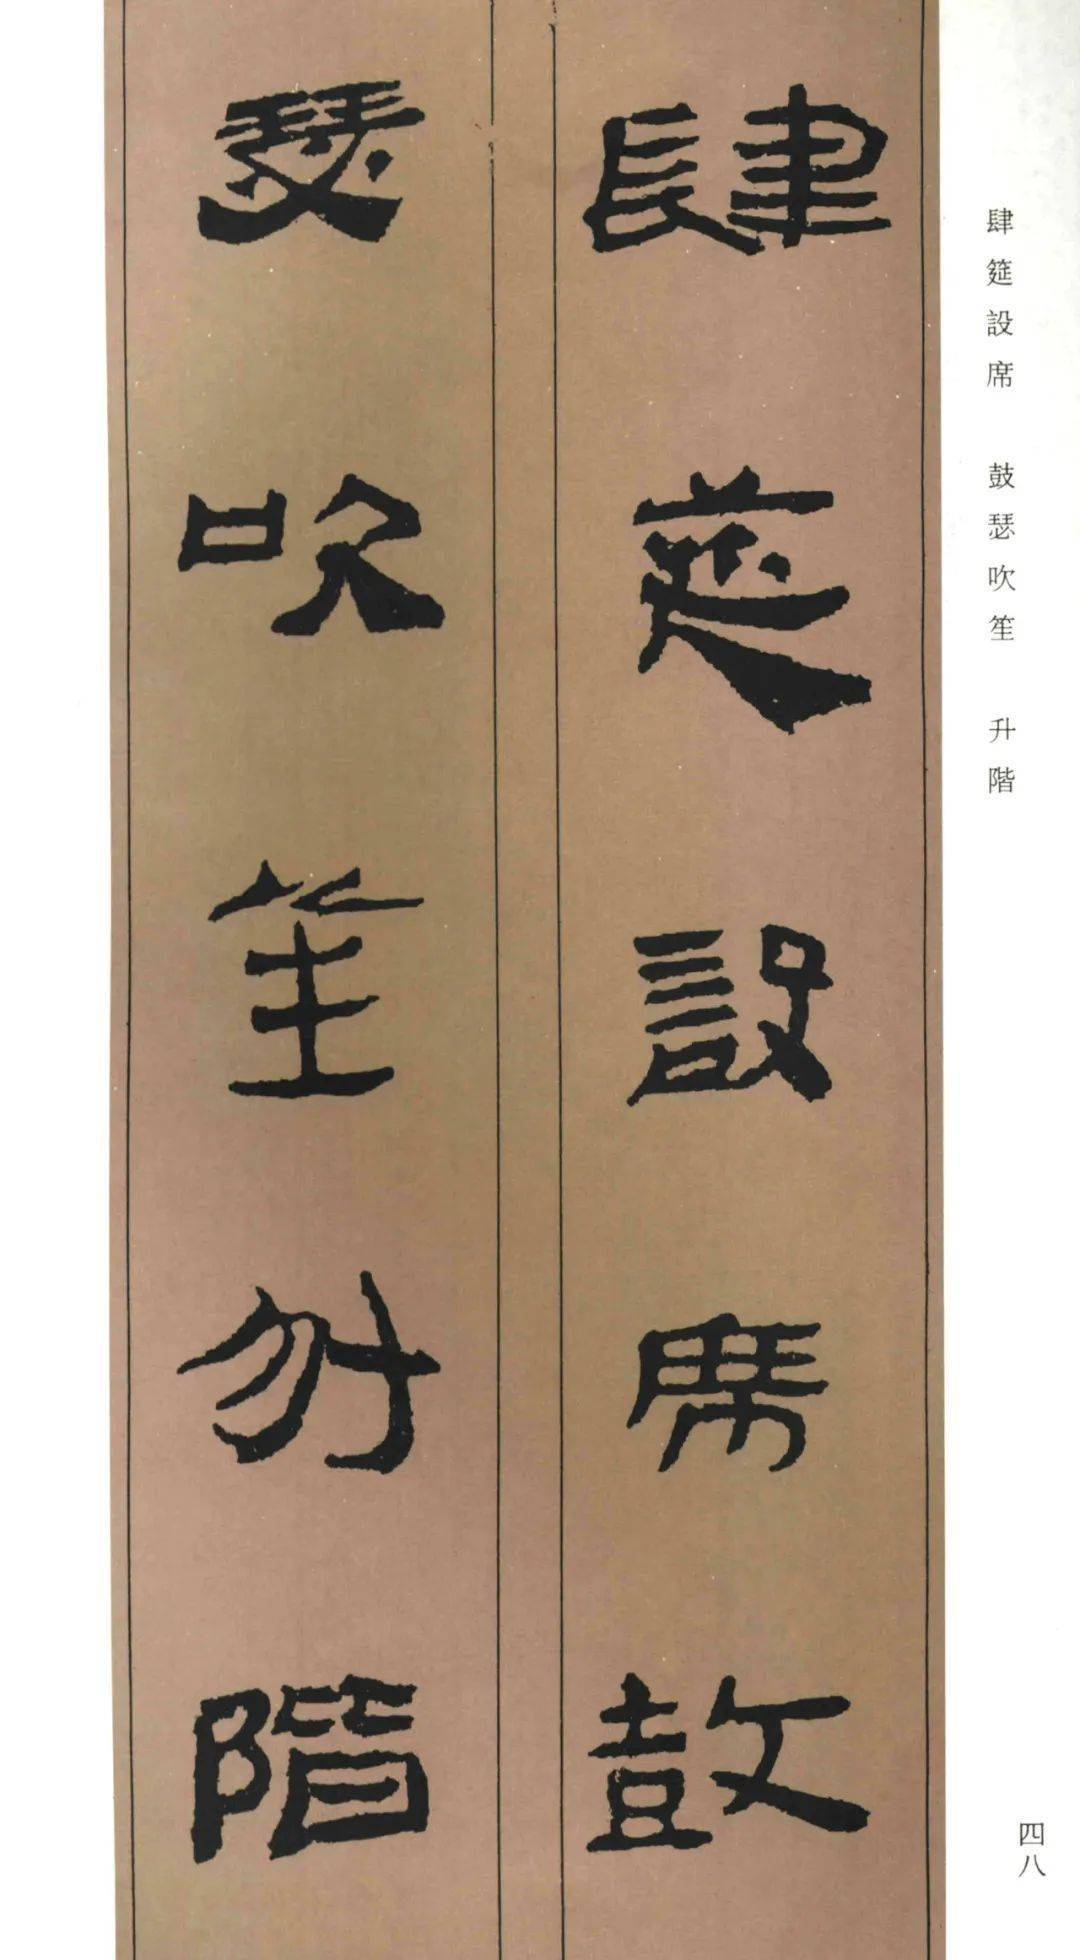 肆筵設席 鼓瑟吹笙 升階
肆筵設席鼓
瑟吹笙升階
四八